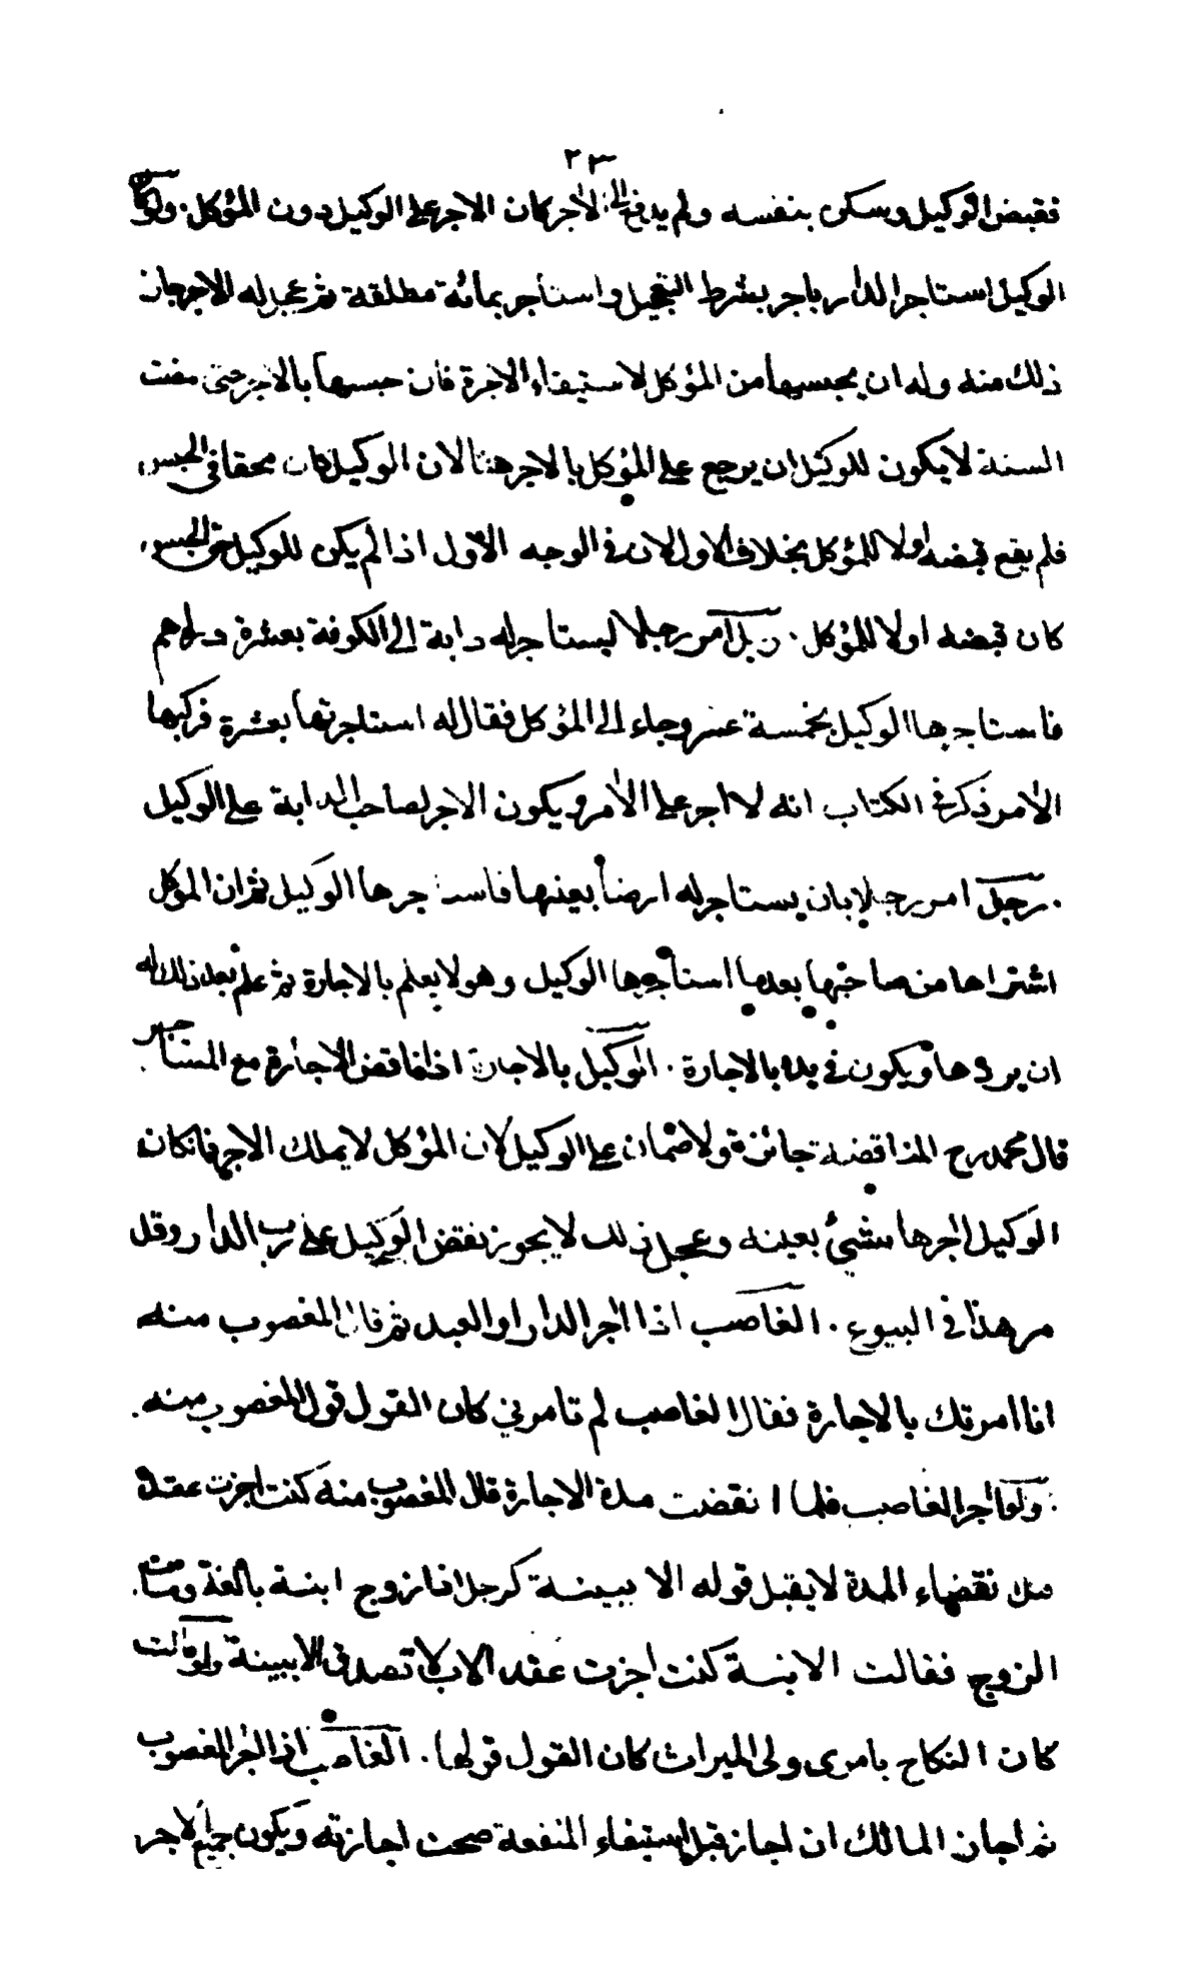 ٢٣
فقبض الوكيل وسكن بنفسه ولم يدفع الى الآجر كان الاجر على الوكيل دون المؤكل. ولو كان
الوكيل استاجر الدار باجر بشرط التعجيل او استاجر بمائة مطلقة ثم عجل له الاجر جاز
ذلك منه وله ان يحبسها من المؤكل لاستيفاء الاجرة فان حبسها بالاجر حتى مضت
السنة لا يكون للوكيل ان يرجع على المؤكل بالاجر هنا لان الوكيل كان محقا فى الحبس
فلم يقع قبضه اولا للمؤكل بخلاف الاول لان فى الوجه الاول اذا لم يكن للوكيل حق الحبس
كان قبضه اولا للمؤكل. رجل آمر رجلا ليستاجر له دابة الى الكوفة بعشرة دراهم
فاستاجرها الوكيل بخمسة عشر وجاء الى المؤكل فقال له استاجرتها بعشرة فركبها
الآمر ذكر فى الكتاب انه لا اجر على الآمر ويكون الاجر لصاحب الدابة على الوكيل
. رجل امر رجلا بان يستاجر له ارضا بعينها فاستاجرها الوكيل ثم ان المؤكل
اشتراها من صاحبها بعد ما استاجرها الوكيل وهو لا يعلم بالاجارة ثم علم بعد ذلك له
ان يردها ويكون فى يده بالاجارة. الوكيل بالاجارة اذا ناقض الاجارة مع المستاجر
قال محمد رح المناقضة جائزة ولا ضمان على الوكيل لان المؤكل لا يملك الاجر فان كان
الوكيل اجرها بشئ بعينه وعجل ذلك لا يجوز نقض الوكيل على رب الدار وقد
مر هذا فى البيوع. الغاصب اذا اجر الدار او العبد ثم قال المغصوب منه
انا امرتك بالاجارة فقال الغاصب لم تامرني كان القول قول المغصوب منه.
. ولو اجر الغاصب فلما انقضت مدة الاجارة قال المغصوب منه كنت اجزت عقده
قبل انقضاء المدة لا يقبل قوله الا ببينة كرجل اذا زوج ابنة بالغة ومات
الزوج فقالت الابنة كنت اجزت عقد الاب لا تصدق الا ببينة ولو قالت
كان النكاح بامرى ولى الميراث كان القول قولها. الغاصب اذا اجر المغصوب
ثم اجاز المالك ان اجاز قبل استيفاء المنفعة صحت اجازته ويكون جميع الاجر